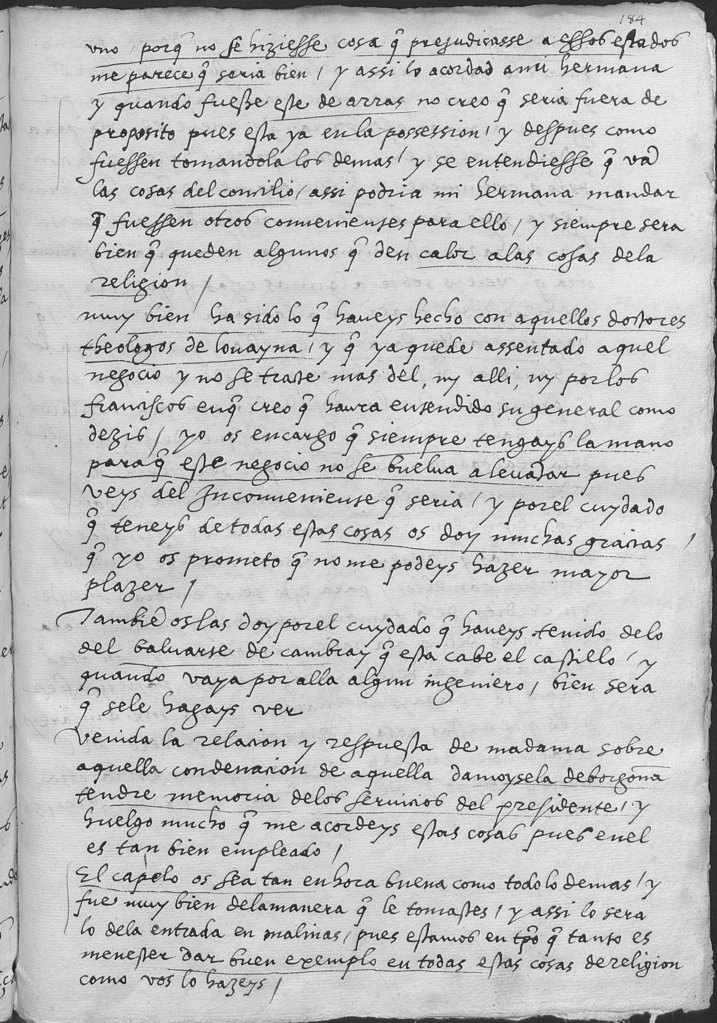 184
uno / porq̃ no se hiziesse cosa q̃ prejudicasse a essos estados
me parece q̃ seria bien / y assi lo acordad a mi hermana
y quando fuesse este de arras no creo q̃ seria fuera de
proposito pues esta ya en la possession / y despues como
fuessen tomandola los demas / y se entendiesse q̃ vã
las cosas del concilio / assi podria mi hermana mandar
q̃ fuessen otros convenientes para ello / y siempre sera
bien q̃ queden algunos q̃ den calor a las cosas dela
religion /
muy bien ha sido lo q̃ haveys hecho con aquellos doctores
theologos de lovayna / y q̃ ya quede assentado aquel
negocio y no se trate mas del, ny alli, ny por los
franciscos en q̃ creo q̃ haura entendido su general como
dezis / yo os encargo q̃ siempre tengays la mano
para q̃ este negocio no se buelva a levãtar pues
veys del Inconveniente q̃ seria / y por el cuydado
q̃ teneys de todas estas cosas os doy muchas gracias /
q̃ yo os prometo q̃ no me podeys hazer mayor
plazer /
Tambiẽ os las doy por el cuydado q̃ haveys tenido delo
del baluarte de cambray q̃ esta cabe el castillo / y
quando vaya por alla algun ingeniero / bien sera
q̃ se le hagays ver
venida la relacion y respuesta de madama sobre
aquella condenacion de aquella damoysela de borgoña
tendre memoria delos servicios del presidente / y
huelgo mucho q̃ me acordeys estas cosas pues en el
es tan bien empleado /
El capelo os sea tan en hora buena como todo lo demas / y
fue muy bien dela manera q̃ le tomastes / y assi lo sera
lo dela entrada en malinas / pues estamos en tp̃o q̃ tanto es
menester dar buen exemplo en todas estas cosas de religion
como vos lo hazeys /